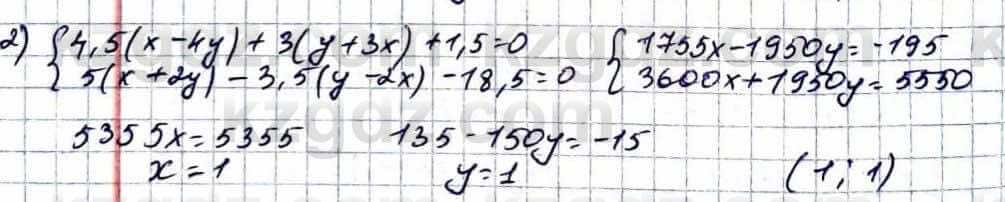 2) { 4,5(x-4y)+3(y+3x)+1,5=0 { 1755x-1950y=-195
5(x+2y)-3,5(y-2x)-18,5=0 3600x+1950y=5550
5355x=5355 135-150y=-15
x=1 y=1 (1; 1)